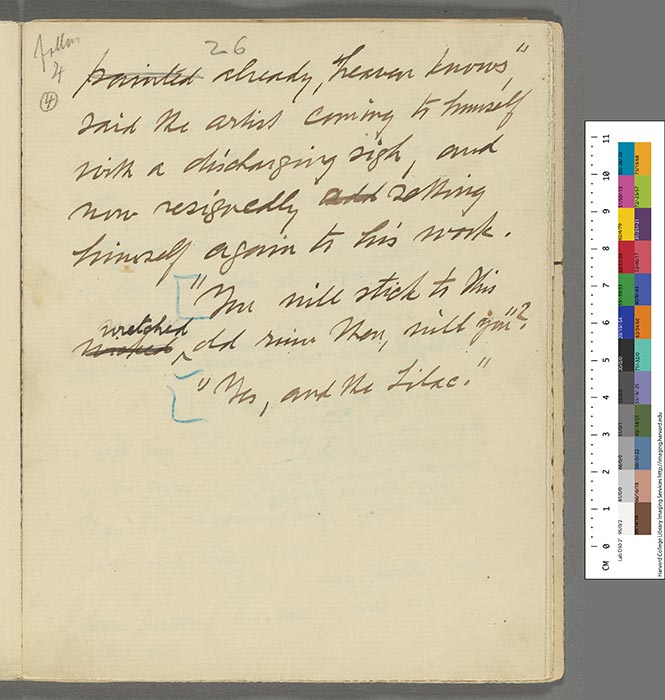 26
follow
4
4
painted already, heaven knows,"
said the artist coming to himself
with a discharging sigh, and
now resignedly and setting
himself again to his work.
"You will stick to this
wretched
wicked old ruin then, will you"?
"Yes, and the Lilac."
CM 0 1 2 3 4 5 6 7 8 9 10 11
Harvard College Library Imaging Services http://imaging.harvard.edu